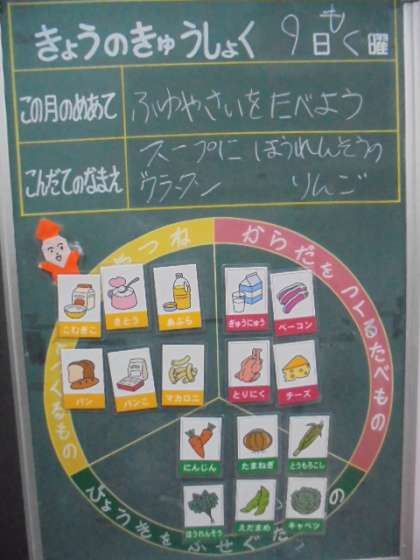 きょうのきゅうしょく 9日もく曜
この月のめあて ふゆやさいをたべよう
こんだてのなまえ スープに ほうれんそうの
グラタン りんご
からだをつくるたべもの
つね
つくるもの
びょうきをふせぐた の
こむぎこ さとう あぶら ぎゅうにゅう ベーコン
パン パンこ マカロニ とりにく チーズ
にんじん たまねぎ とうもろこし
ほうれんそう えだまめ キャベツ